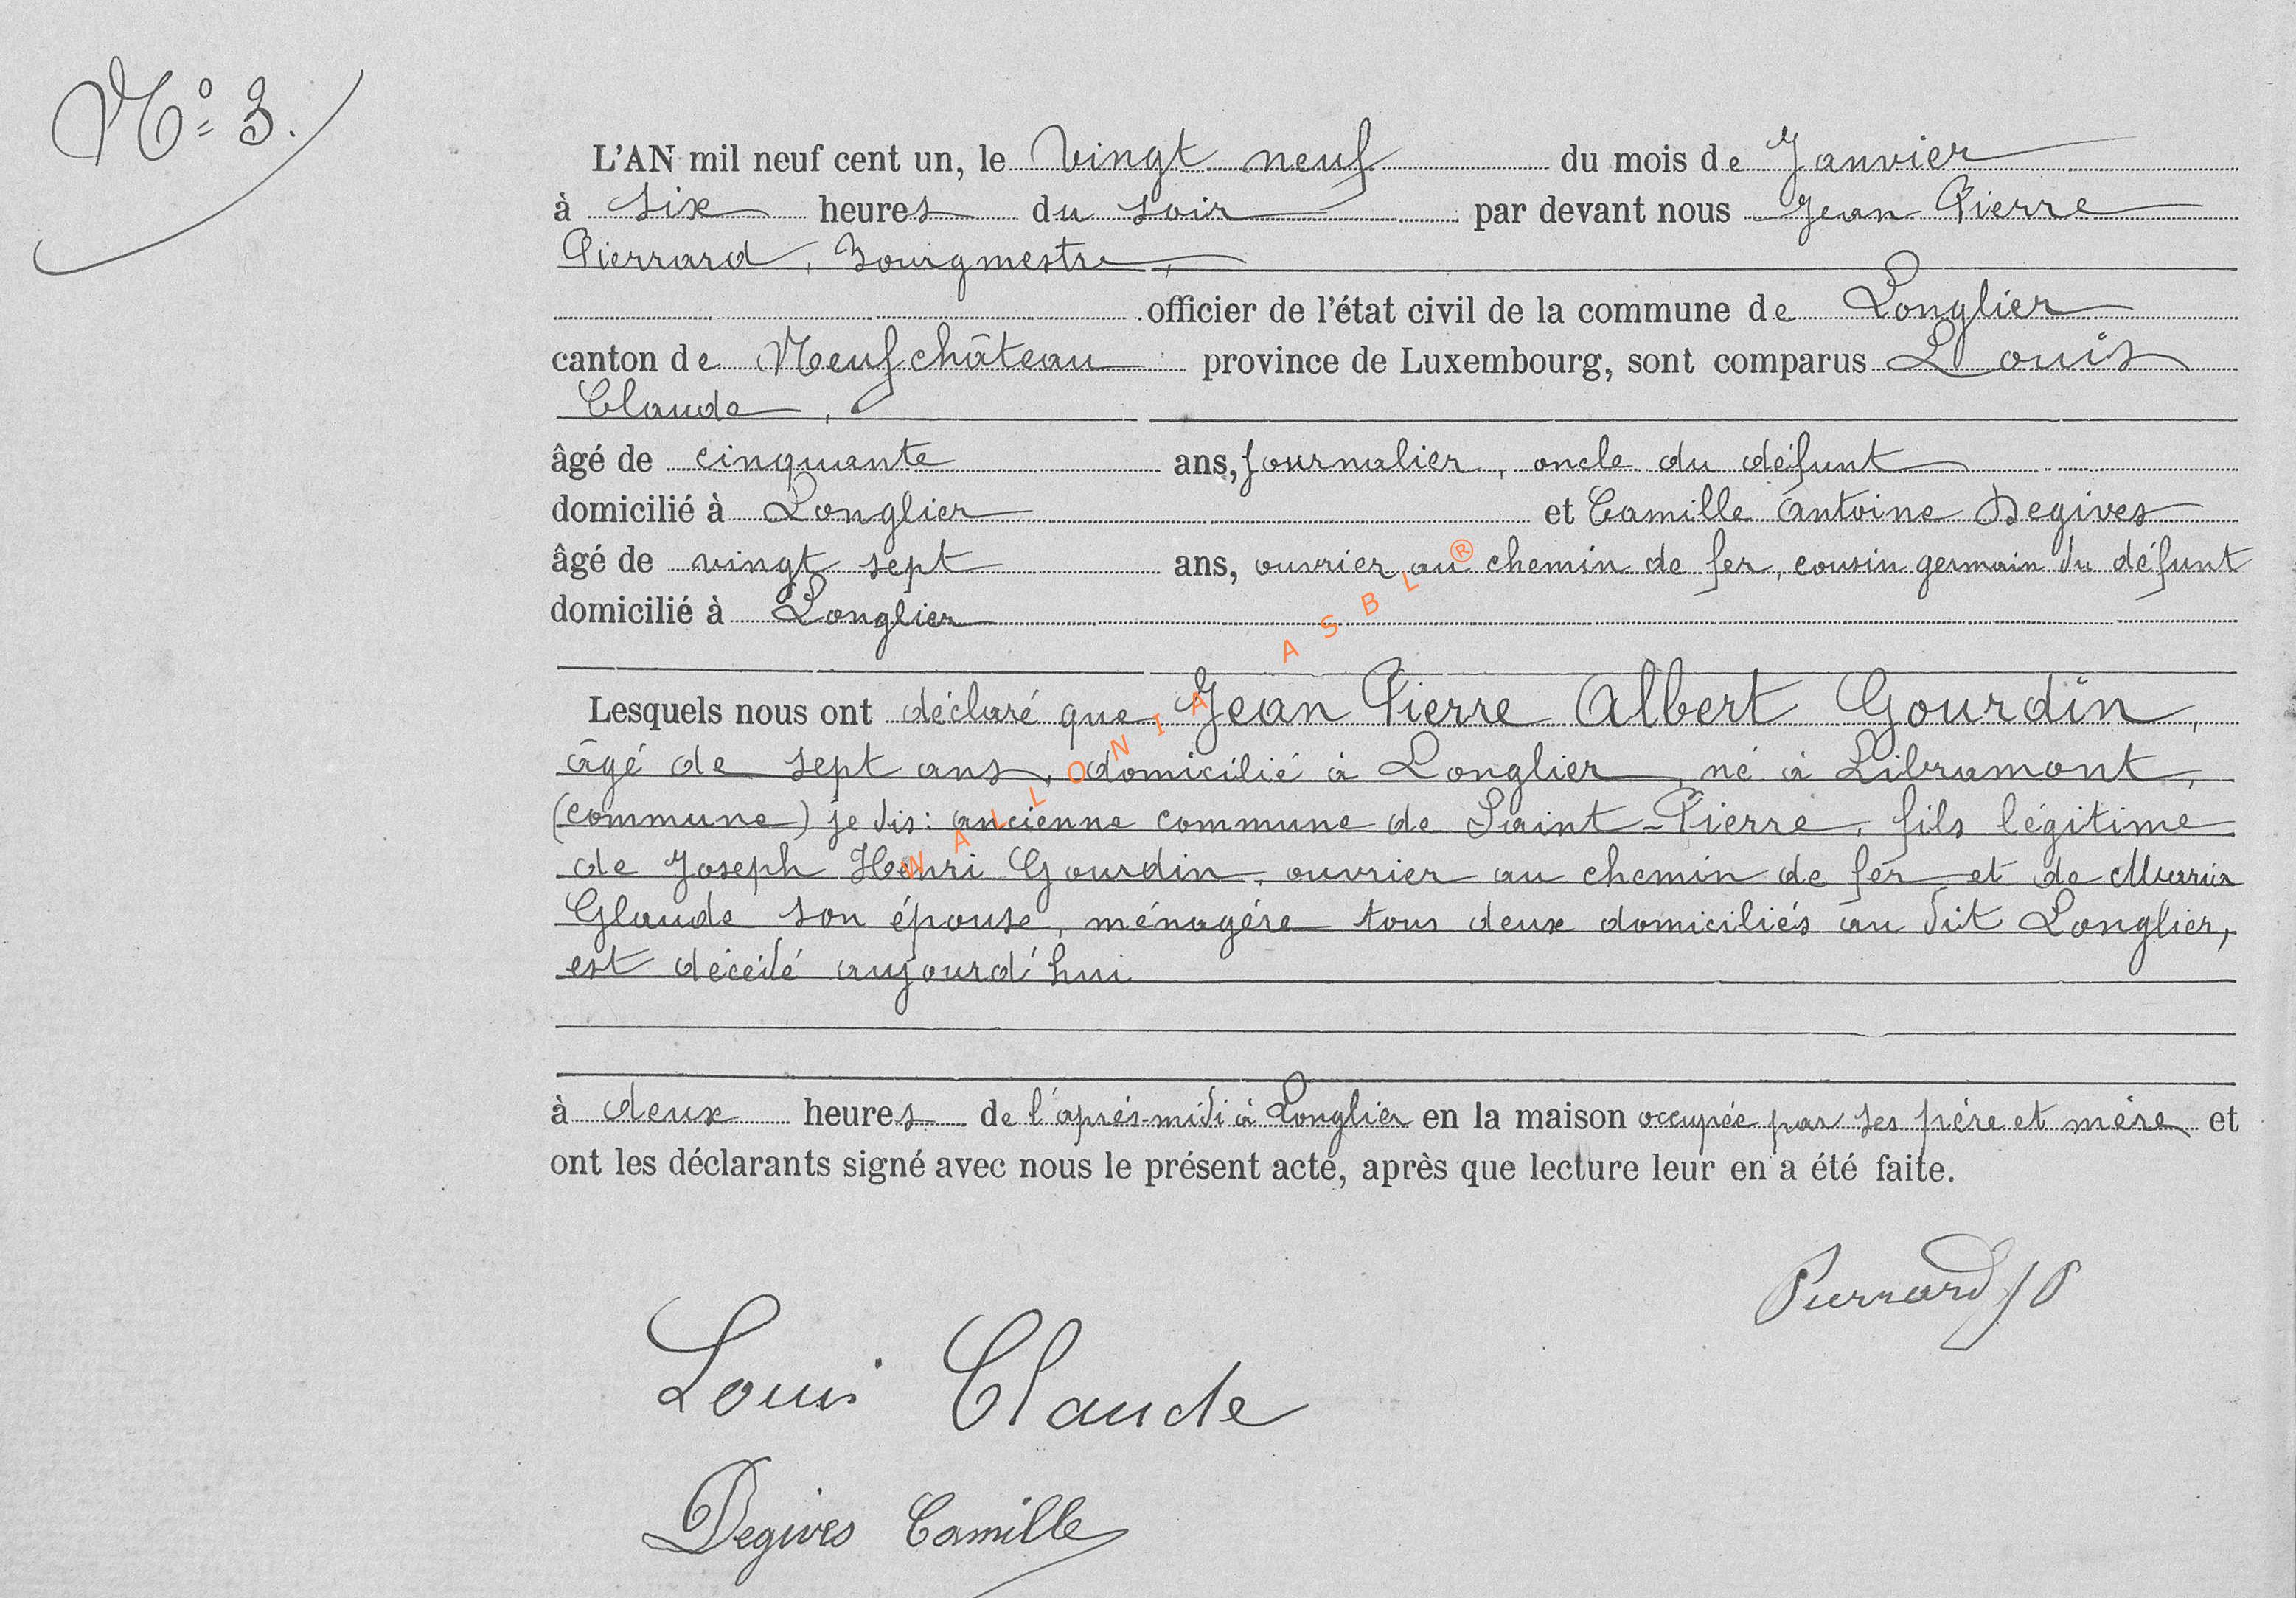 N° 3.
L'AN mil neuf cent un, le vingt neuf du mois de Janvier
à six heures du soir par devant nous Jean Pierre
Pierrard, Bourgmestre,
officier de l'état civil de la commune de Longlier
canton de Neufchâteau province de Luxembourg, sont comparus Louis
Claude,
âgé de cinquante ans, journalier, oncle du défunt
domicilié à Longlier et Camille Antoine Degives
âgé de vingt sept ans, ouvrier au chemin de fer, cousin germain du défunt
domicilié à Longlier
Lesquels nous ont déclaré que Jean Pierre Albert Gourdin,
âgé de sept ans, domicilié à Longlier, né à Libramont,
(commune) je dis: ancienne commune de Saint-Pierre, fils légitime
de Joseph Henri Gourdin, ouvrier au chemin de fer et de Maria
Glaude son épouse, ménagère tous deux domiciliés au dit Longlier,
est décédé aujourd'hui
à deux heures de l'après-midi à Longlier en la maison occupée par ses père et mère et
ont les déclarants signé avec nous le présent acte, après que lecture leur en a été faite.
Pierrard JP
Louis Claude
Degives Camille
WALLONIA ASBL ®